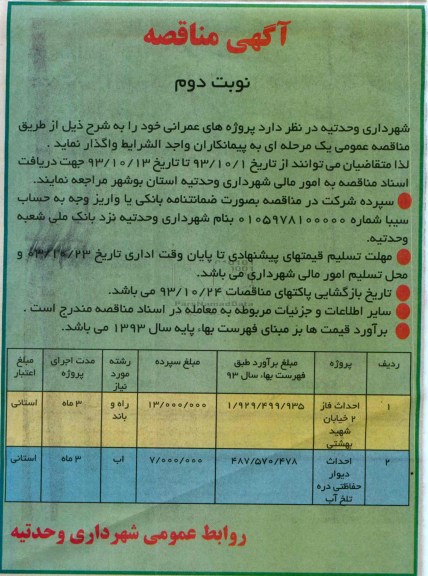 آگهی مناقصه
نوبت دوم
شهرداری وحدتیه در نظر دارد پروژه های عمرانی خود را به شرح ذیل از طریق
مناقصه عمومی یک مرحله ای به پیمانکاران واجد الشرایط واگذار نماید .
لذا متقاضیان می توانند از تاریخ ۹۳/۱۰/۱ تا تاریخ ۹۳/۱۰/۱۳ جهت دریافت
اسناد مناقصه به امور مالی شهرداری وحدتیه استان بوشهر مراجعه نمایند.
سپرده شرکت در مناقصه بصورت ضمانتنامه بانکی یا واریز وجه به حساب
سیبا شماره ۰۱۰۵۹۷۸۱۰۰۰۰۰ بنام شهرداری وحدتیه نزد بانک ملی شعبه
وحدتیه.
مهلت تسلیم قیمتهای پیشنهادی تا پایان وقت اداری تاریخ و
محل تسلیم امور مالی شهرداری می باشد.
تاریخ بازگشایی پاکتهای مناقصات ۹۳/۱۰/۲۴ می باشد.
ParsNamadData
سایر اطلاعات و جزئیات مربوطه به معامله در اسناد مناقصه مندرج است .
برآورد قیمت ها بر مبنای فهرست بهاء پایه سال ۱۳۹۳ می باشد.
ردیف پروژه مبلغ برآورد طبق فهرست بهاء سال ۹۳ مبلغ سپرده رشته مورد نیاز مدت اجرای پروژه مبلغ اعتبار
۱ احداث فاز ۲ خیابان شهید بهشتی ۱/۹۲۹/۴۹۹/۹۳۵ ۱۳/۰۰۰/۰۰۰ راه و باند ۳ ماه استانی
۲ احداث دیوار حفاظتی دره تلخ آب ۴۸۷/۵۷۰/۴۷۸ ۷/۰۰۰/۰۰۰ اب ۳ ماه استانی
روابط عمومی شهرداری وحدتیه